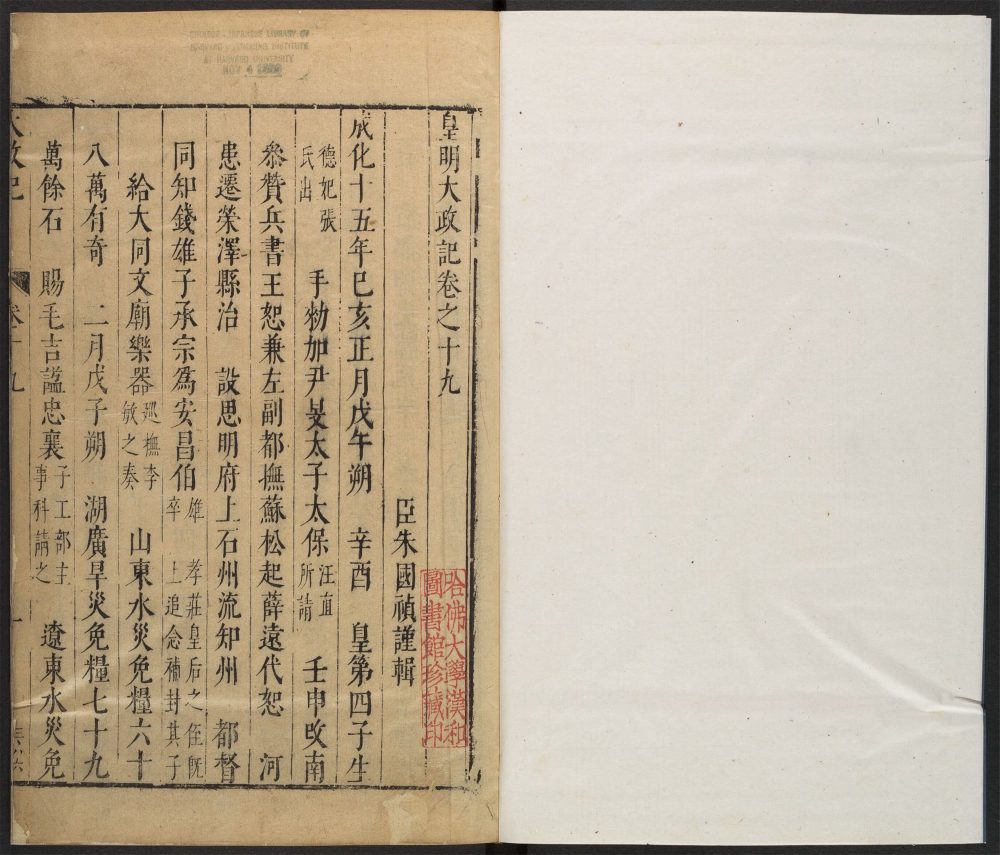 CHINESE - JAPANESE LIBRARY OF
HARVARD - YENCHING INSTITUTE
AT HARVARD UNIVERSITY
皇明大政記卷之十九
臣朱國禎謹輯
哈佛大學漢和
圖書館珍藏印
成化十五年己亥正月戊午朔　辛酉　皇第四子生
德妃張
氏出　手勑加尹旻太子太保汪直
所請　壬申改南
叅贊兵書王恕兼左副都撫蘇松起薛遠代恕　河
患遷滎澤縣治　設思明府上石州流知州　都督
同知錢雄子承宗為安昌伯雄　孝莊皇后之侄旣
卒　上追念補封其子
給大同文廟樂器廵撫李
敏之奏　山東水災免糧六十
八萬有奇　二月戊子朔　湖廣旱災免糧七十九
萬餘石　賜毛吉諡忠襄子工部主
事科請之　遼東水災免
大政記
卷十九
一